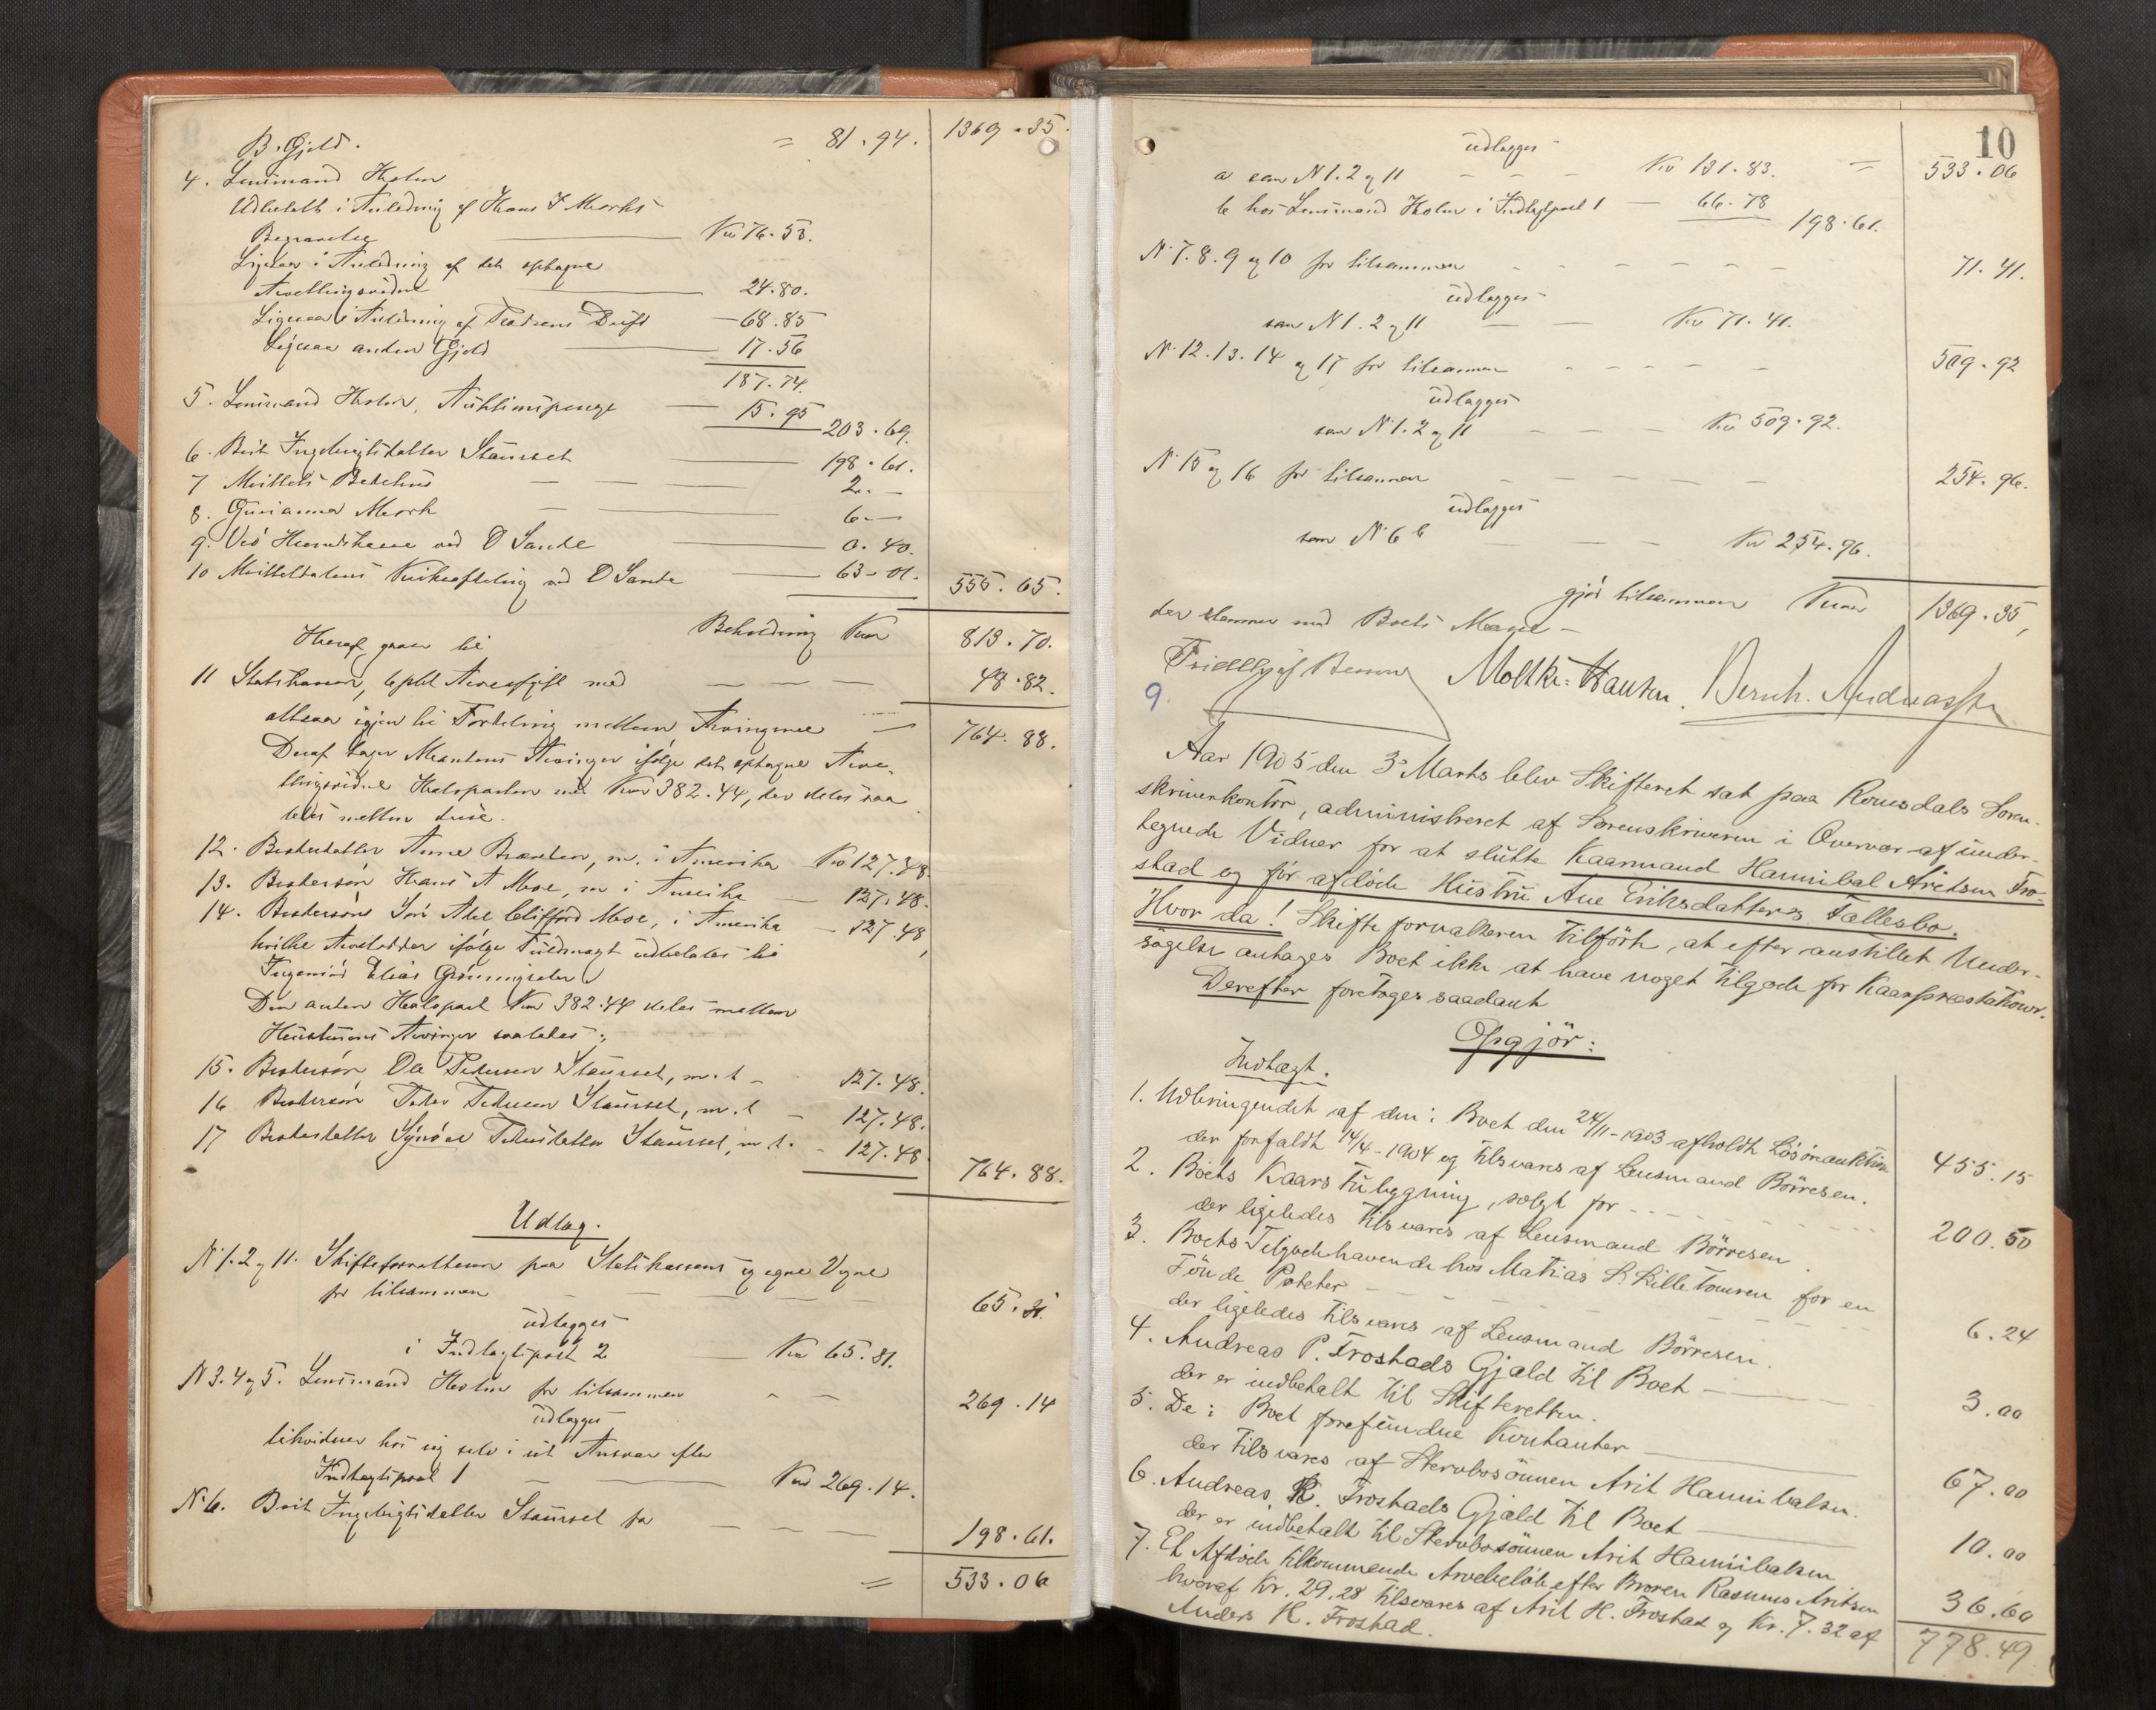 B. Gjeld. = 81.94. 1369.35.
4. Lensmand Holm
Udbetalt i Anledning af Hans I Morks
Begravelse Kr 76.53.
Ligesaa i Anledning af det optagne
Arvetlingsvidne 24.80.
Ligesaa i Anledning af Bets Drift 68.85
Ligesaa anden Gjeld 17.56
187.74.
5. Lensmand Holm, Auktionspenge 15.95 203.69.
6. Brit Ingebrigtsdatter Staurset 198.61.
7 Bedehus 2.-
8. Gurianna Mork 6.-
9. ved O Sande 0.40.
10 ved O Sande 63.01. 555.65.
Beholdning Kr 813.70.
Heraf gaar til
11 Statskassen, 6 pCt Arveafgift med 48.82.
altsaa igjen til Fordeling mellem Arvingerne 764.88.
Deraf tager Mandens Arvinger ifølge det optagne Arve-
tlingsvidne Halvparten med Kr 382.44, der deles saa
ledes mellem disse.
12. Broderdatter Anne m. i Amerika Kr 127.48.
13. Brodersön Hans A Moe, m i Amerika 127.48.
14. Brodersöns Sön Abel Clifford Moe, i Amerika 127.48
hvilke Arvelodder ifølge Fuldmagt udbetales til
Ingeniör Elias
Den anden Halvpart Kr 382.44 deles mellem
Hustruens Arvinger saaledes:
15. Brodersön Ole Pedersen Staurset, m.t 127.48.
16 Brodersön Peder Pedersen Staurset, m.t 127.48.
17 Broderdatter Synöve Pedersdatter Staurset, m.t. 127.48. 764.88.
Udlæg.
N 1.2 og 11. Skifteforvalteren paa Statskassens og egne Vegne
for tilsammen 65.81.
udlægges
i Indtægtspost 2 Kr 65.81.
N 3.4 og 5. Lensmand Holm for tilsammen 269.14
udlægges
likviderer hos sig selv i sit Ansvar efter
Indtægtspost 1 Kr 269.14.
N 6. Brit Ingebrigtsdatter Staurset for 198.61.
= 533.06
10
udlægges = 533.06
a som N 1.2 og 11 Kr 131.83.
b hos Lensmand Holm i Indtægtspost 1 66.78
198.61.
N 7.8.9 og 10 for tilsammen 71.41.
udlægges
som N 1.2 og 11 Kr 71.41.
N 12.13.14 og 17 for tilsammen 509.92
udlægges
som N 1.2 og 11 Kr 509.92.
N 15 og 16 for tilsammen 254.96.
udlægges
som N 6 b Kr 254.96.
gjør tilsammen Kroner 1369.35,
der stemmer med Boets Masse -
Moltke-Hansen. Bernh. Andreassen
9.
Aar 1905 den 3' Marts blev Skifteret sat paa Romsdals Soren-
skriverkontor, administreret af Sorenskriveren i Overvær af under-
tegnede Vidner for at slutte Kaarmand Hannibal Aritsen Fro-
stad og før afdöde Hustru Ane Eriksdatters Fællesbo.
Hvor da! Skifteforvalteren tilførte, at efter anstillet Under-
sögelse antages Boet ikke at have noget tilgode for Kaarpræstationer.
Derefter foretoges saadant
Opgjör:
Indtægt.
1. Udbringendet af den i Boet den 24/11-1903 afholdt Lösöreauktion
der forfaldt 14/4-1904 og tilsvares af Lensmand Börresen. 455.15
2. Boets Kaarstubygning, solgt for
der ligeledes tilsvares af Lensmand Börresen. 200.50
3. Boets Tilgodehavende hos Matias L. Lilletomren for en
Tönde Poteter
der ligeledes tilsvares af Lensmand Börresen. 6.24
4. Andreas P. Frostads Gjæld til Boet
der er indbetalt til Skifteretten. 3.00
5. De i Boet forefundne Kontanter
der tilsvares af Stervbosönnen Arit Hannibalsen. 67.00
6. Andreas K. Frostads Gjæld til Boet
der er indbetalt til Stervbosönnen Arit Hannibalsen 10.00
7. Et Afdöde tilkommende Arvebelöb efter Broren Rasmus Aritsen
hvoraf Kr. 29.28 tilsvares af Arit H. Frostad og Kr. 7.32 af
Anders K. Frostad. 36.60
778.49